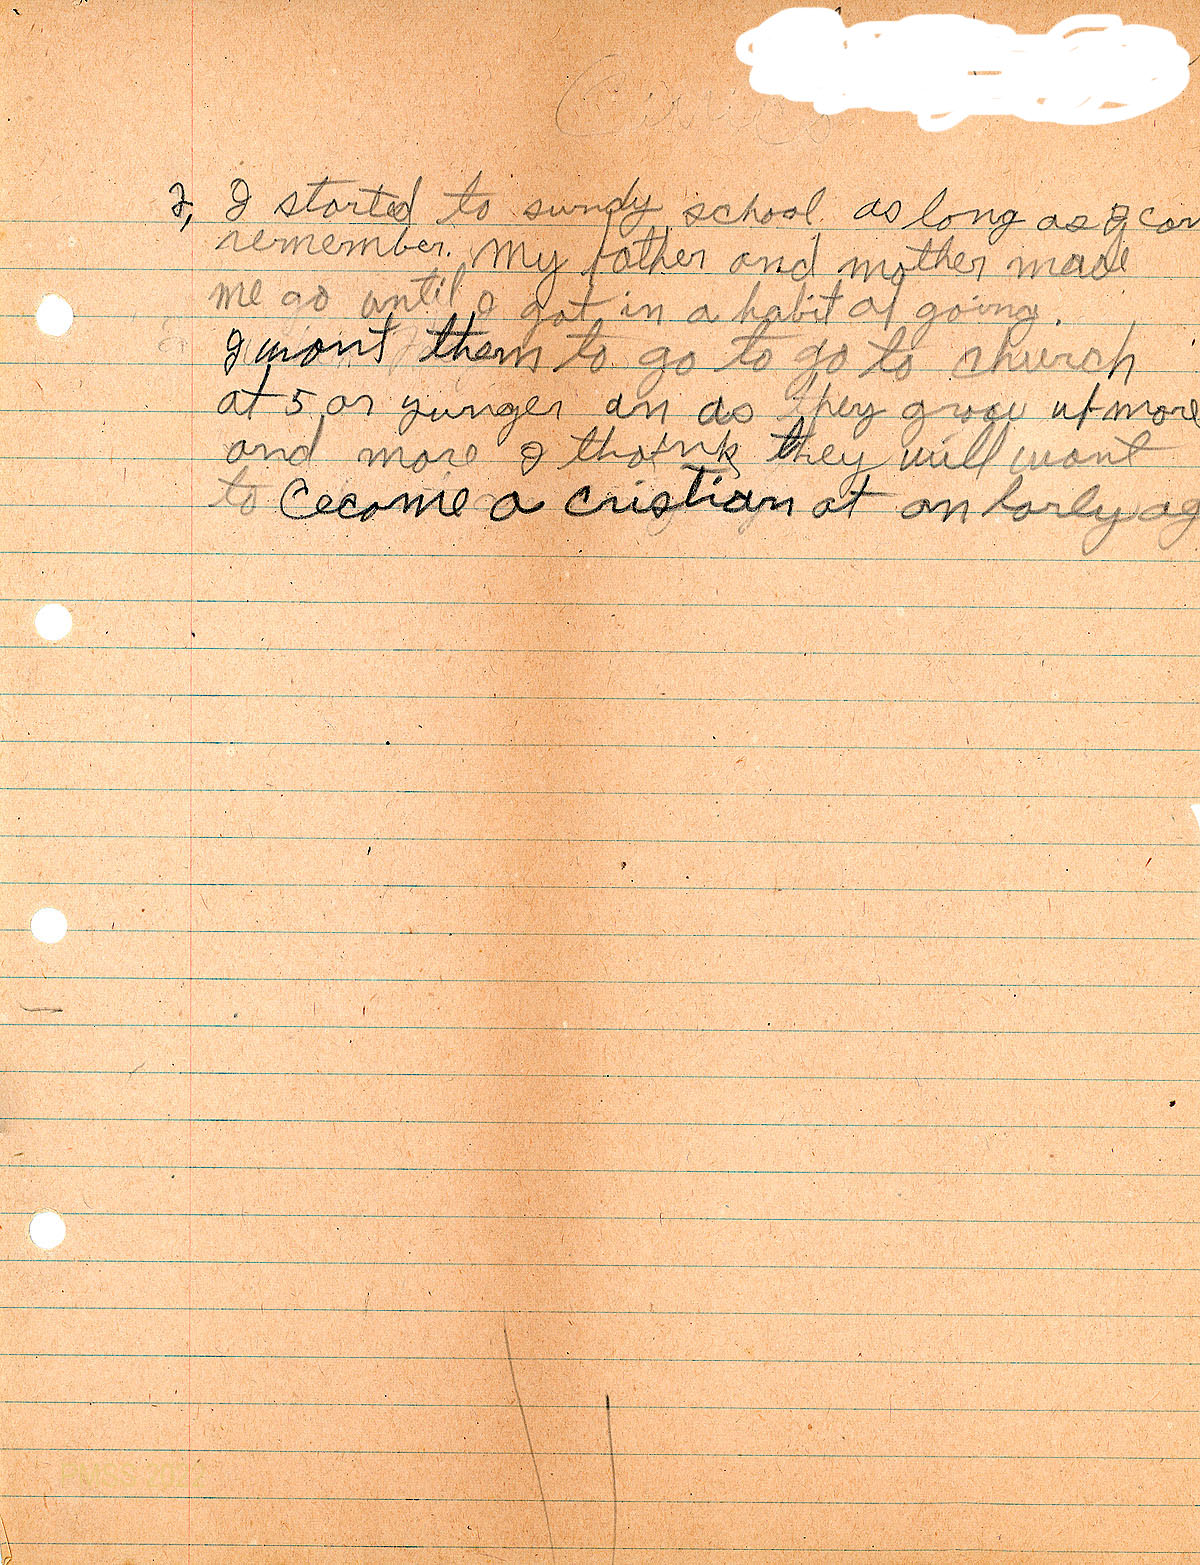 Civics
2, I started to sundy school as long as I can
remember. My father and mother made
me go until I got in a habit of going.
I wont them to go to go to church
at 5 or yunger an as they grow up more
and more I think they will want
to Cecome a cristian at an Early ag
PMSS 2022